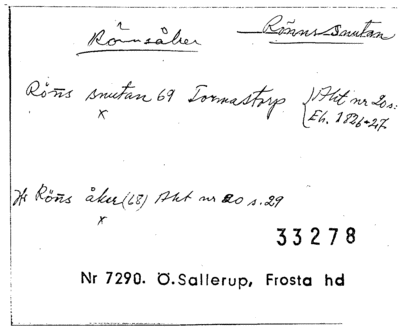 Rönnsåker
Rönns snutan
Röns snutan 69 Tormastorp { Akt nr 20 s.
Eh. 1826-27
x
Röns åker (68) Akt nr 20 s. 29
x
33278
Nr 7290. Ö.Sallerup, Frosta hd